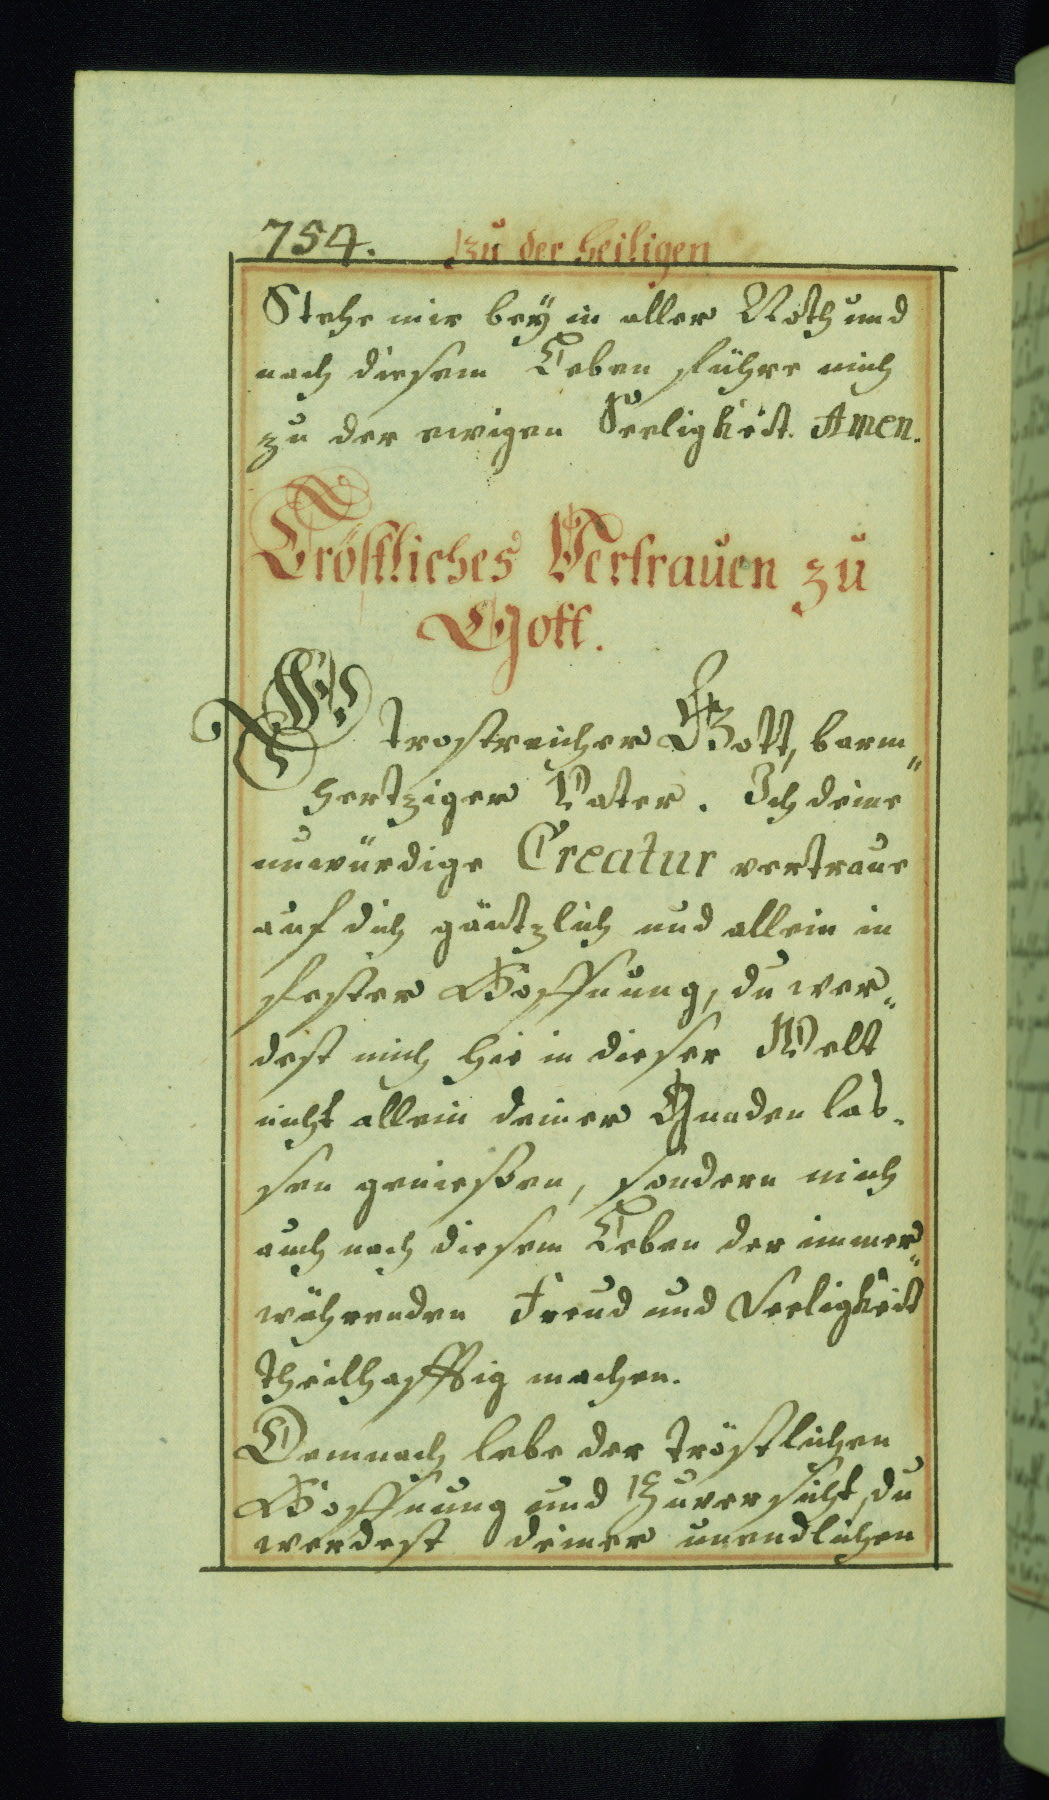 754. Zu der Heiligen
Stehe mir bey in aller Noth und
nach diesem Leben führe mich
zu der ewigen Seeligkeit. Amen.
Tröstliches Vertrauen zu
Gott.
trostreicher Gott, barm„
hertziger Vater. Ich deine
unwürdige Creatur vertraue
auf dich gäntzlich und allein in
fester Hoffnung, du wer„
dest mich hie in dieser Welt
nicht allein deiner Gnaden las„
sen geniessen, sondern mich
auch nach diesem Leben der immer„
währenden Freud und Seeligkeit
theilhafftig machen.
Demnach lebe der tröstlichen
Hoffnung und Zuversicht, du
werdest deiner unendlichen